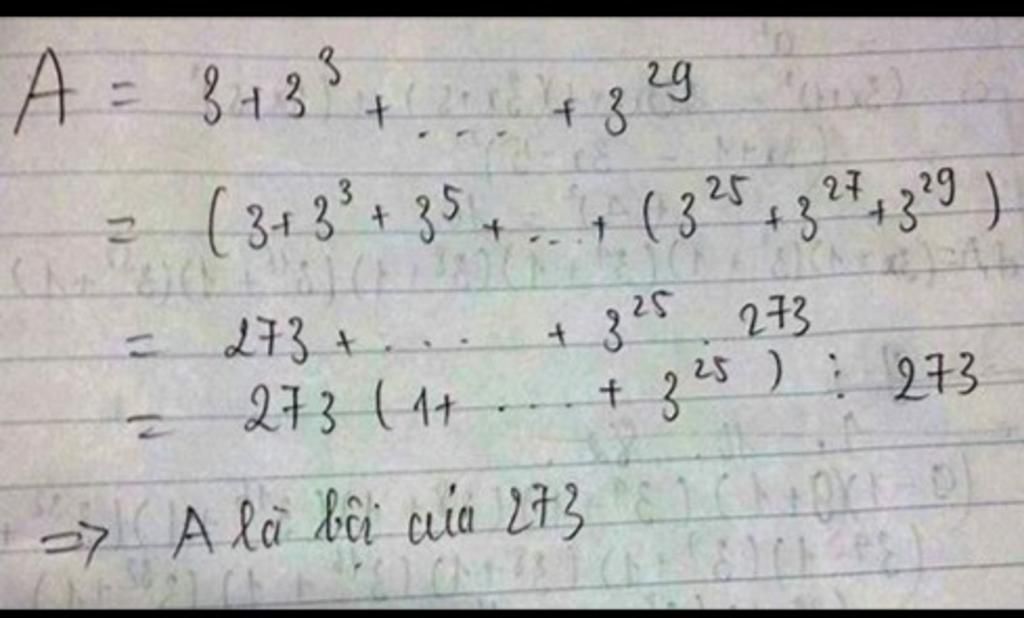 A = 3 + 3³ + .... + 3²⁹
= (3 + 3³ + 3⁵ + ... + (3²⁵ + 3²⁷ + 3²⁹)
= 273 + .... + 3²⁵ . 273
= 273 (1 + .... + 3²⁵) ⋮ 273
=> A là bội của 273